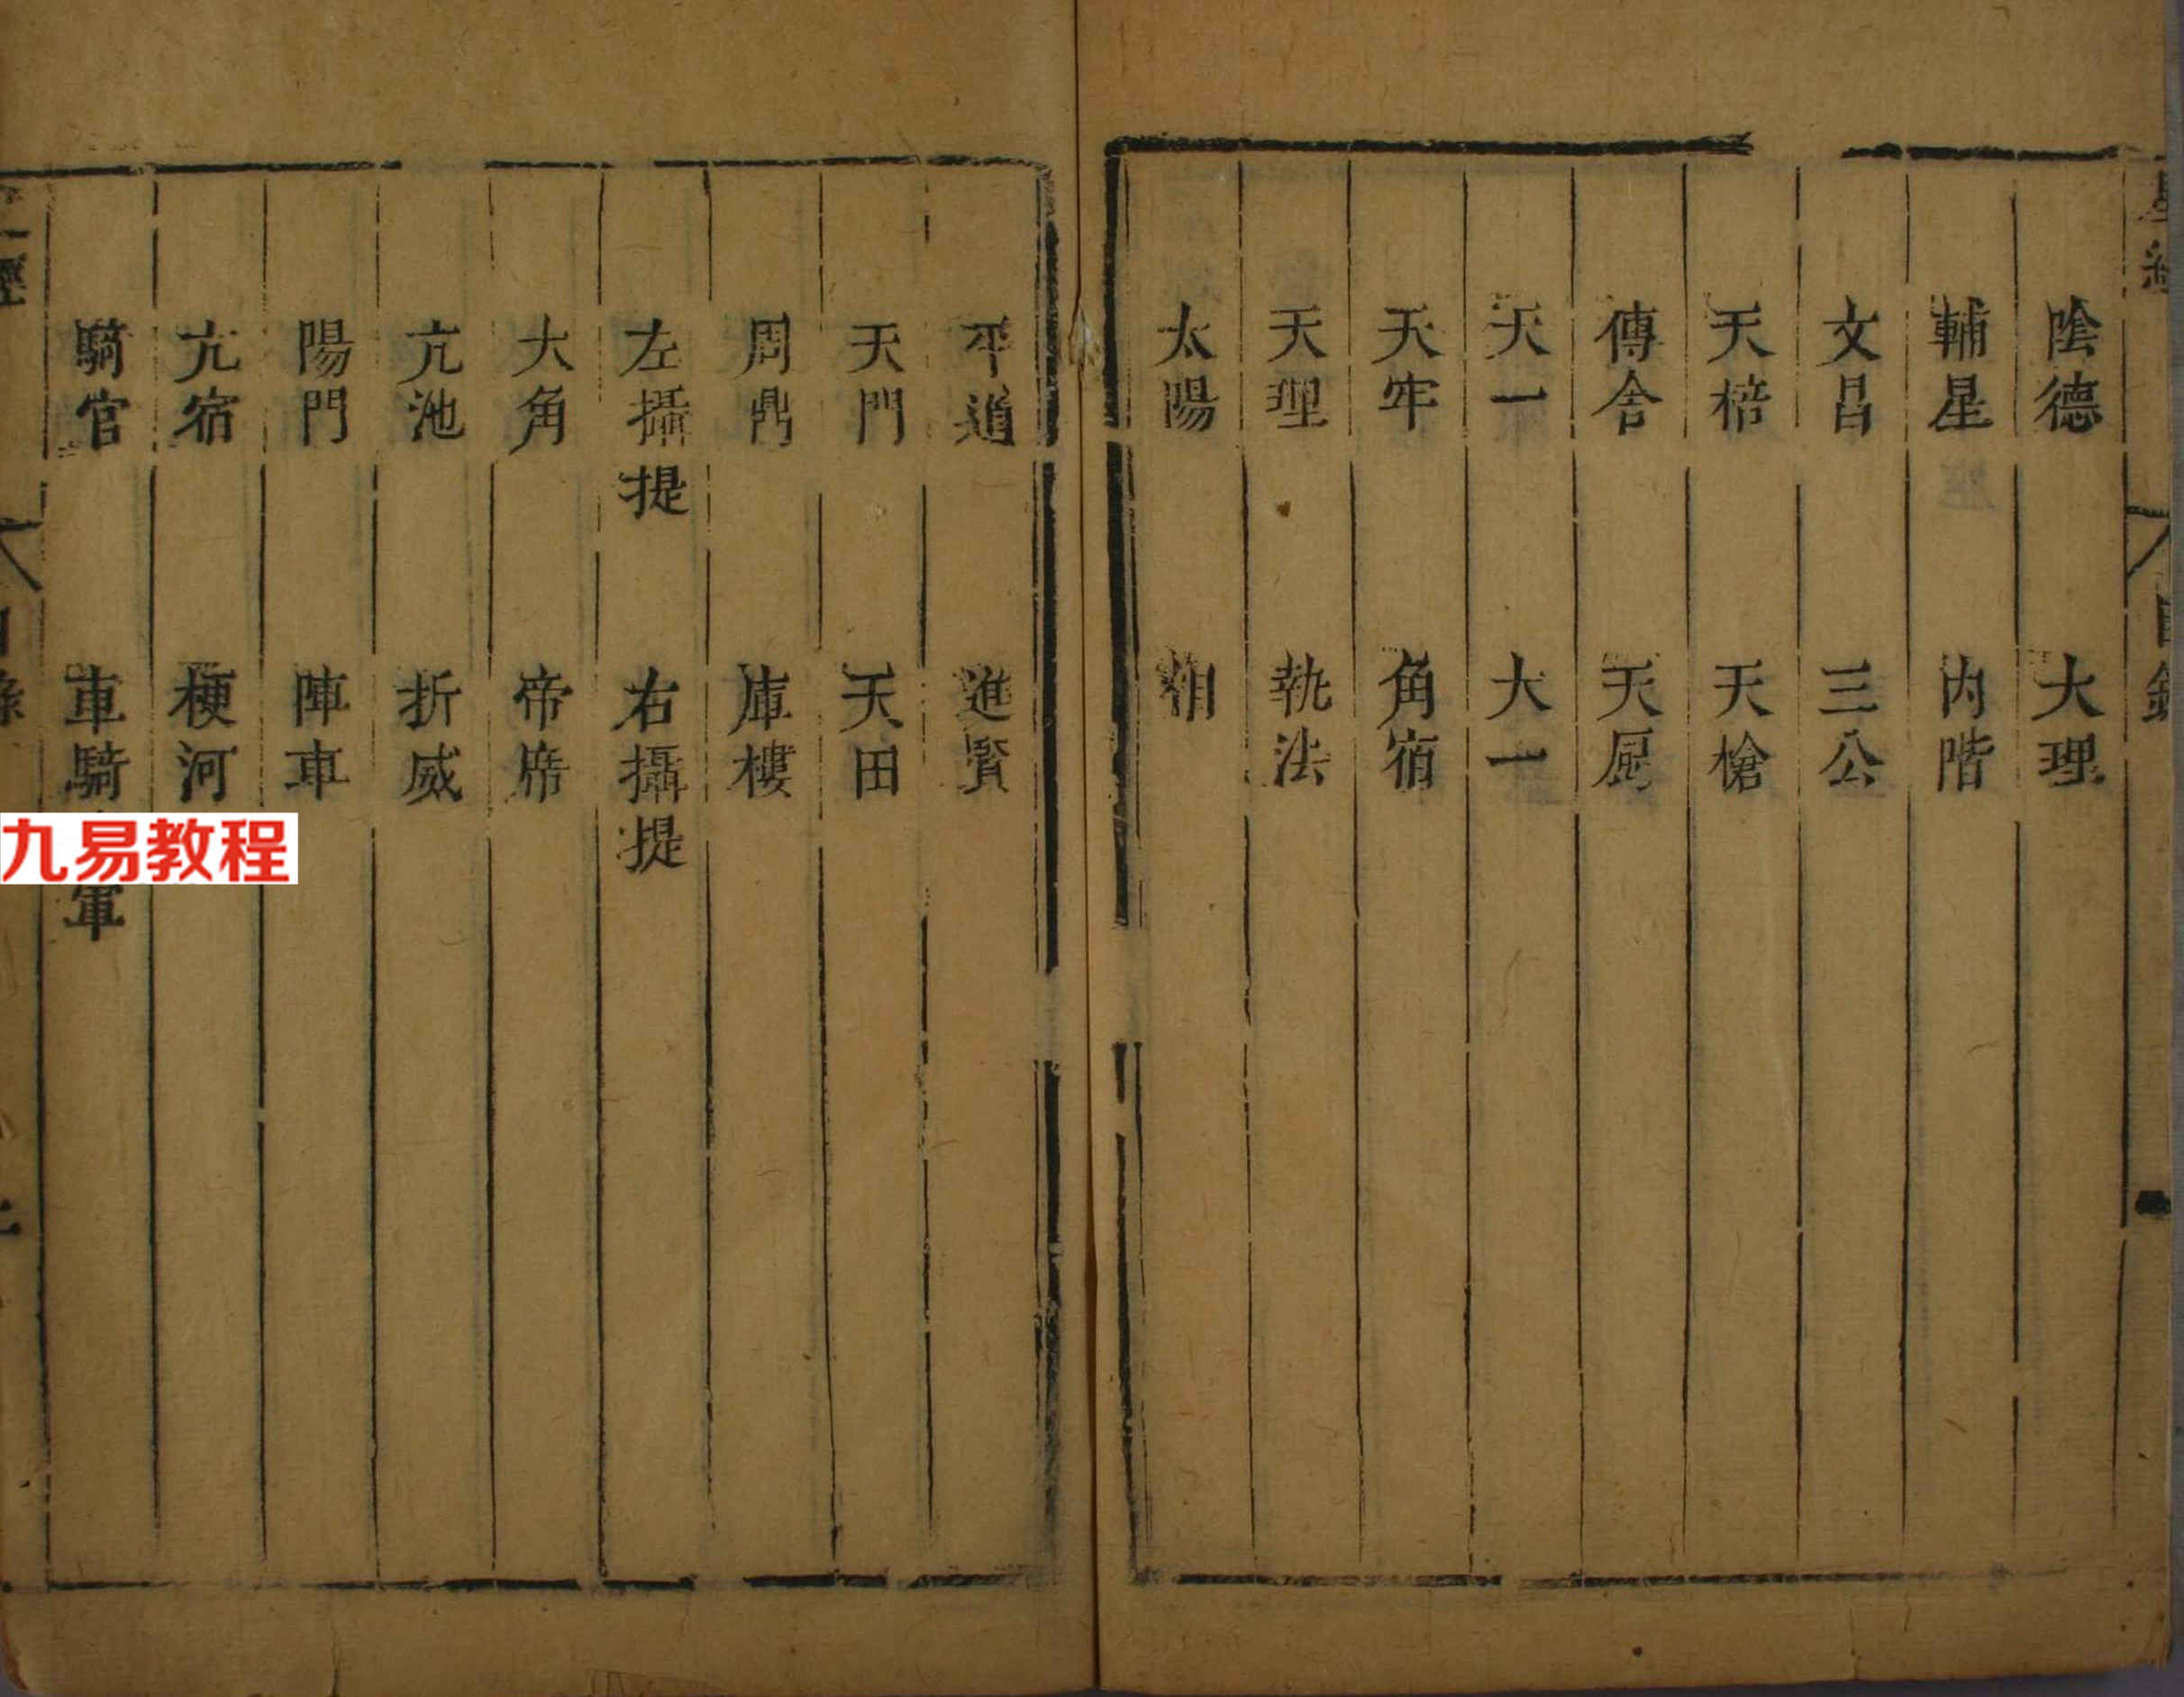 星經 目錄
陰德 大理
輔星 内階
文昌 三公
天棓 天槍
傳舍 天厨
天一 大一
天牢 角宿
天理 執法
太陽 相
平道 進賢
天門 天田
周鼎 庫樓
左攝提 右攝提
大角 帝席
亢池 折威
陽門 陣車
亢宿 梗河
騎官 車騎 軍
九易教程